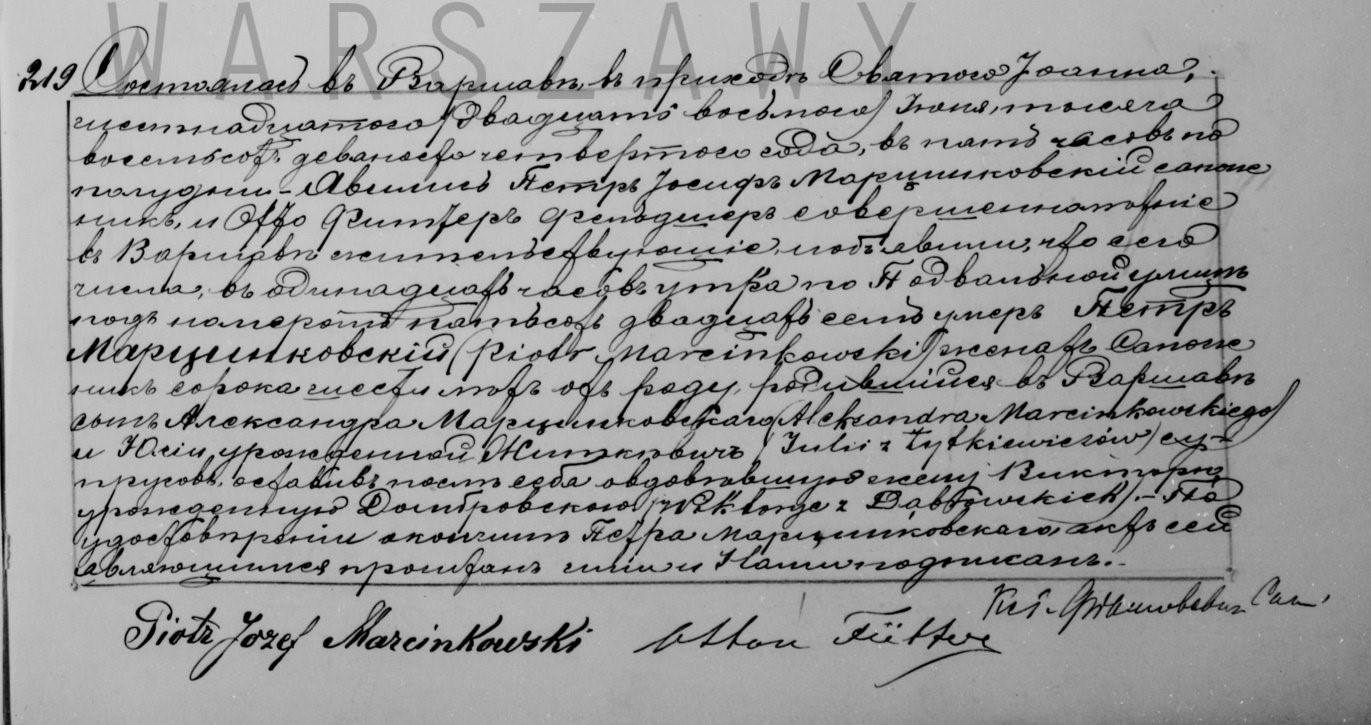 WARSZAWY
219 Состоялась въ Варшавѣ, въ приходѣ Святого Іоанна,
шестнадцатого (двадцать восьмого) Іюня, тысяча
восемьсотъ девяносто четвертого года, въ пять часовъ по
полудни. – Явились Петръ Іосифъ Марцинковскій сапож
никъ, и Отто фельдшеръ совершеннолѣтніе
въ Варшавѣ жительствующіе, и объявили, что сего
числа, въ одинадцать часовъ утра по Подвальной улицѣ
подъ номеромъ пятьсотъ двадцать семь умеръ Петръ
Марцинковскій (Piotr Marcinkowski) женатъ Сапож
никъ сорока шести лѣтъ отъ роду, родившійся въ Варшавѣ
сынъ Александра Марцинковскаго (Aleksandra Marcinkowskiego)
и Юліи, урожденной Житкевичъ (Julii z Żytkiewiczów) су-
пруговъ, оставивъ послѣ себя овдовѣвшую жену Викторію
урожденную Домбровскою (Wiktorję z Dąbrowskich). – По
удостовѣреніи о кончинѣ Петра Марцинковскаго, актъ сей
являющимся прочитанъ ими и Нами подписанъ. –
Piotr Józef Marcinkowski Otton